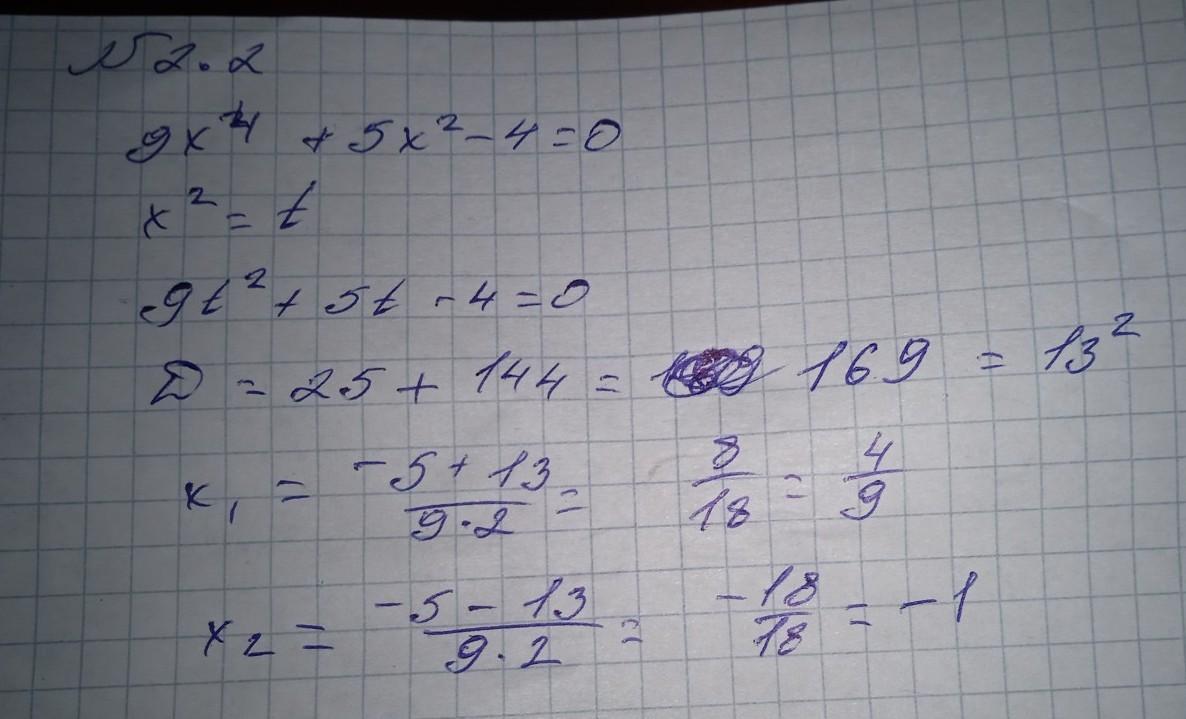 №2.2
9x⁴ + 5x² - 4 = 0
x² = t
9t² + 5t - 4 = 0
D = 25 + 144 = 169 = 13²
x₁ = (-5 + 13)/(9·2) = 8/18 = 4/9
x₂ = (-5 - 13)/(9·2) = -18/18 = -1